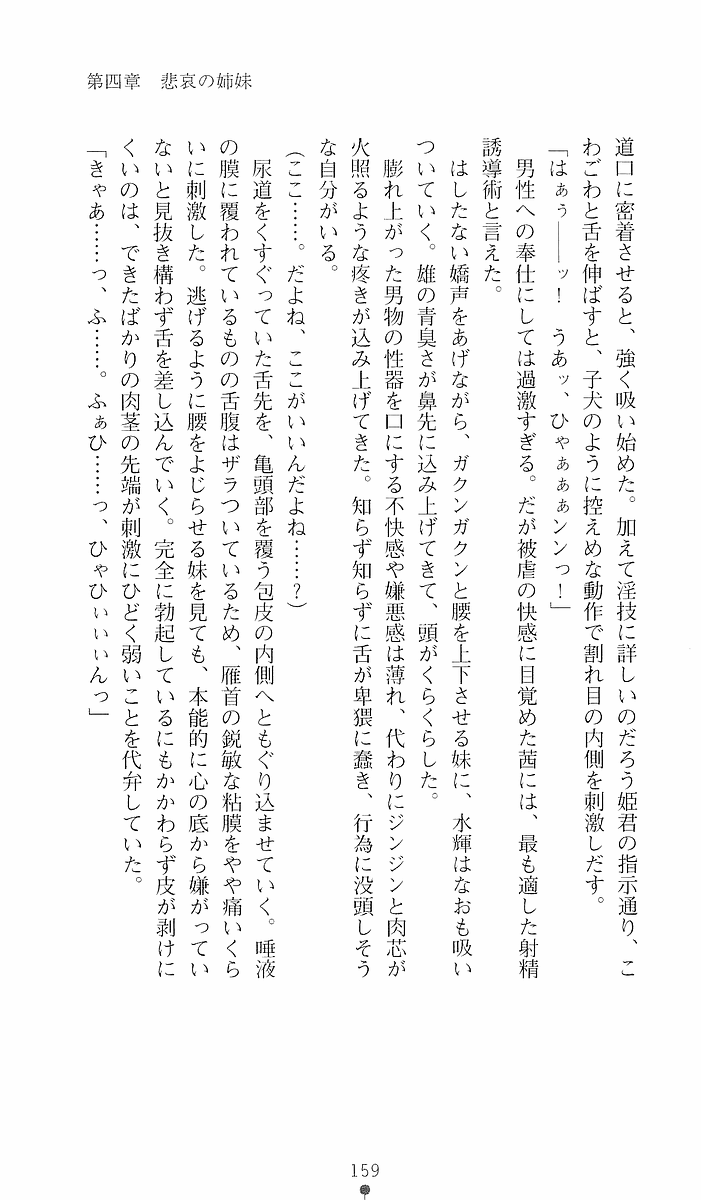 第四章　悲哀の姉妹
道口に密着させると、強く吸い始めた。加えて淫技に詳しいのだろう姫君の指示通り、こ
わごわと舌を伸ばすと、子犬のように控えめな動作で割れ目の内側を刺激しだす。
「はぁぅ――ッ！　うあッ、ひゃぁぁぁンンっ！」
　男性への奉仕にしては過激すぎる。だが被虐の快感に目覚めた茜には、最も適した射精
誘導術と言えた。
　はしたない嬌声をあげながら、ガクンガクンと腰を上下させる妹に、水輝はなおも吸い
ついていく。雄の青臭さが鼻先に込み上げてきて、頭がくらくらした。
　膨れ上がった男物の性器を口にする不快感や嫌悪感は薄れ、代わりにジンジンと肉芯が
火照るような疼きが込み上げてきた。知らず知らずに舌が卑猥に蠢き、行為に没頭しそう
な自分がいる。
（ここ……。だよね、ここがいいんだよね……？）
　尿道をくすぐっていた舌先を、亀頭部を覆う包皮の内側へともぐり込ませていく。唾液
の膜に覆われているものの舌腹はザラついているため、雁首の鋭敏な粘膜をやや痛いくら
いに刺激した。逃げるように腰をよじらせる妹を見ても、本能的に心の底から嫌がってい
ないと見抜き構わず舌を差し込んでいく。完全に勃起しているにもかかわらず皮が剥けに
くいのは、できたばかりの肉茎の先端が刺激にひどく弱いことを代弁していた。
「きゃあ……っ、ふ……。ふぁひ……っ、ひゃひぃぃぃんっ」
159